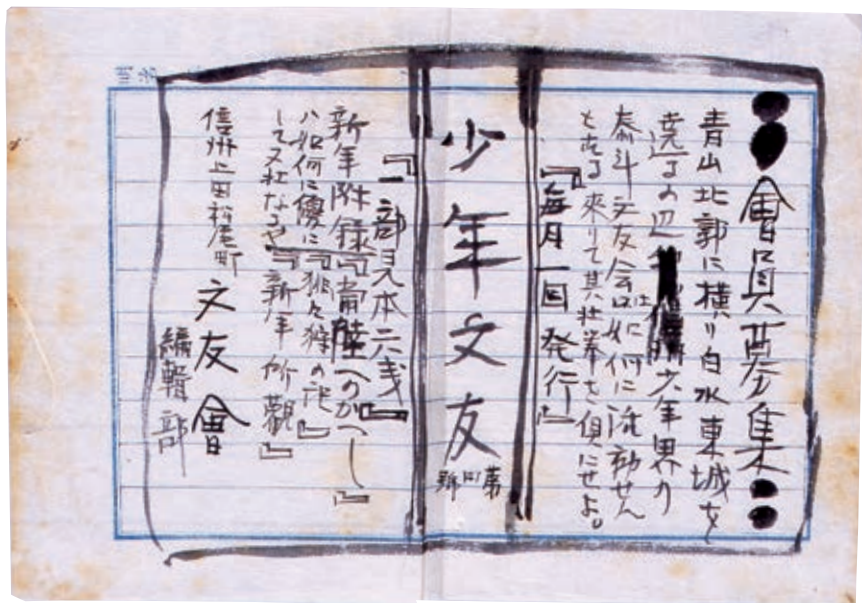 會員募集
青山北郭に横り白水東城を
遶るの辺 少年界の
泰斗文友会は如何に活動せん
とする 来りて其壮挙を倶にせよ。
『毎月一回発行』
少年文友
第四号
『一部見本六銭』
新年附録『青陸へのかへし』
ハ如何に優に『猅々狩の記』
して又壮なるや『新年所観』
信州上田松尾町 文友會
編輯部